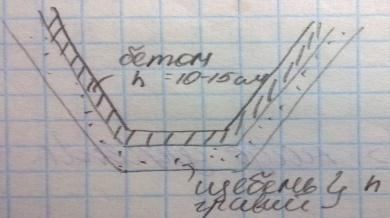 бетон
h = 10-15 см
щебень
гравий
h